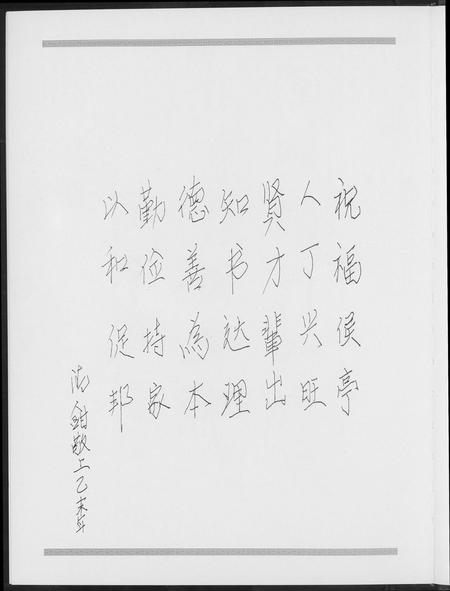 祝福侯亭
人丁兴旺
贤才辈出
知书达理
德善為本
勤俭持家
以和促邦
敬上乙未年